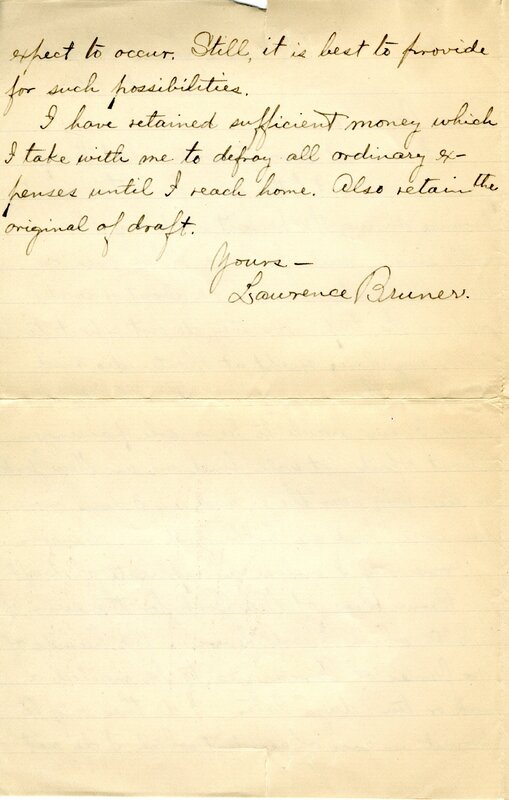 expect to occur. Still, it is best to provide
for such possibilities.
I have retained sufficient money which
I take with me to defray all ordinary ex-
penses until I reach home. Also retain the
original of draft.
Yours—
Lawrence Bruner.